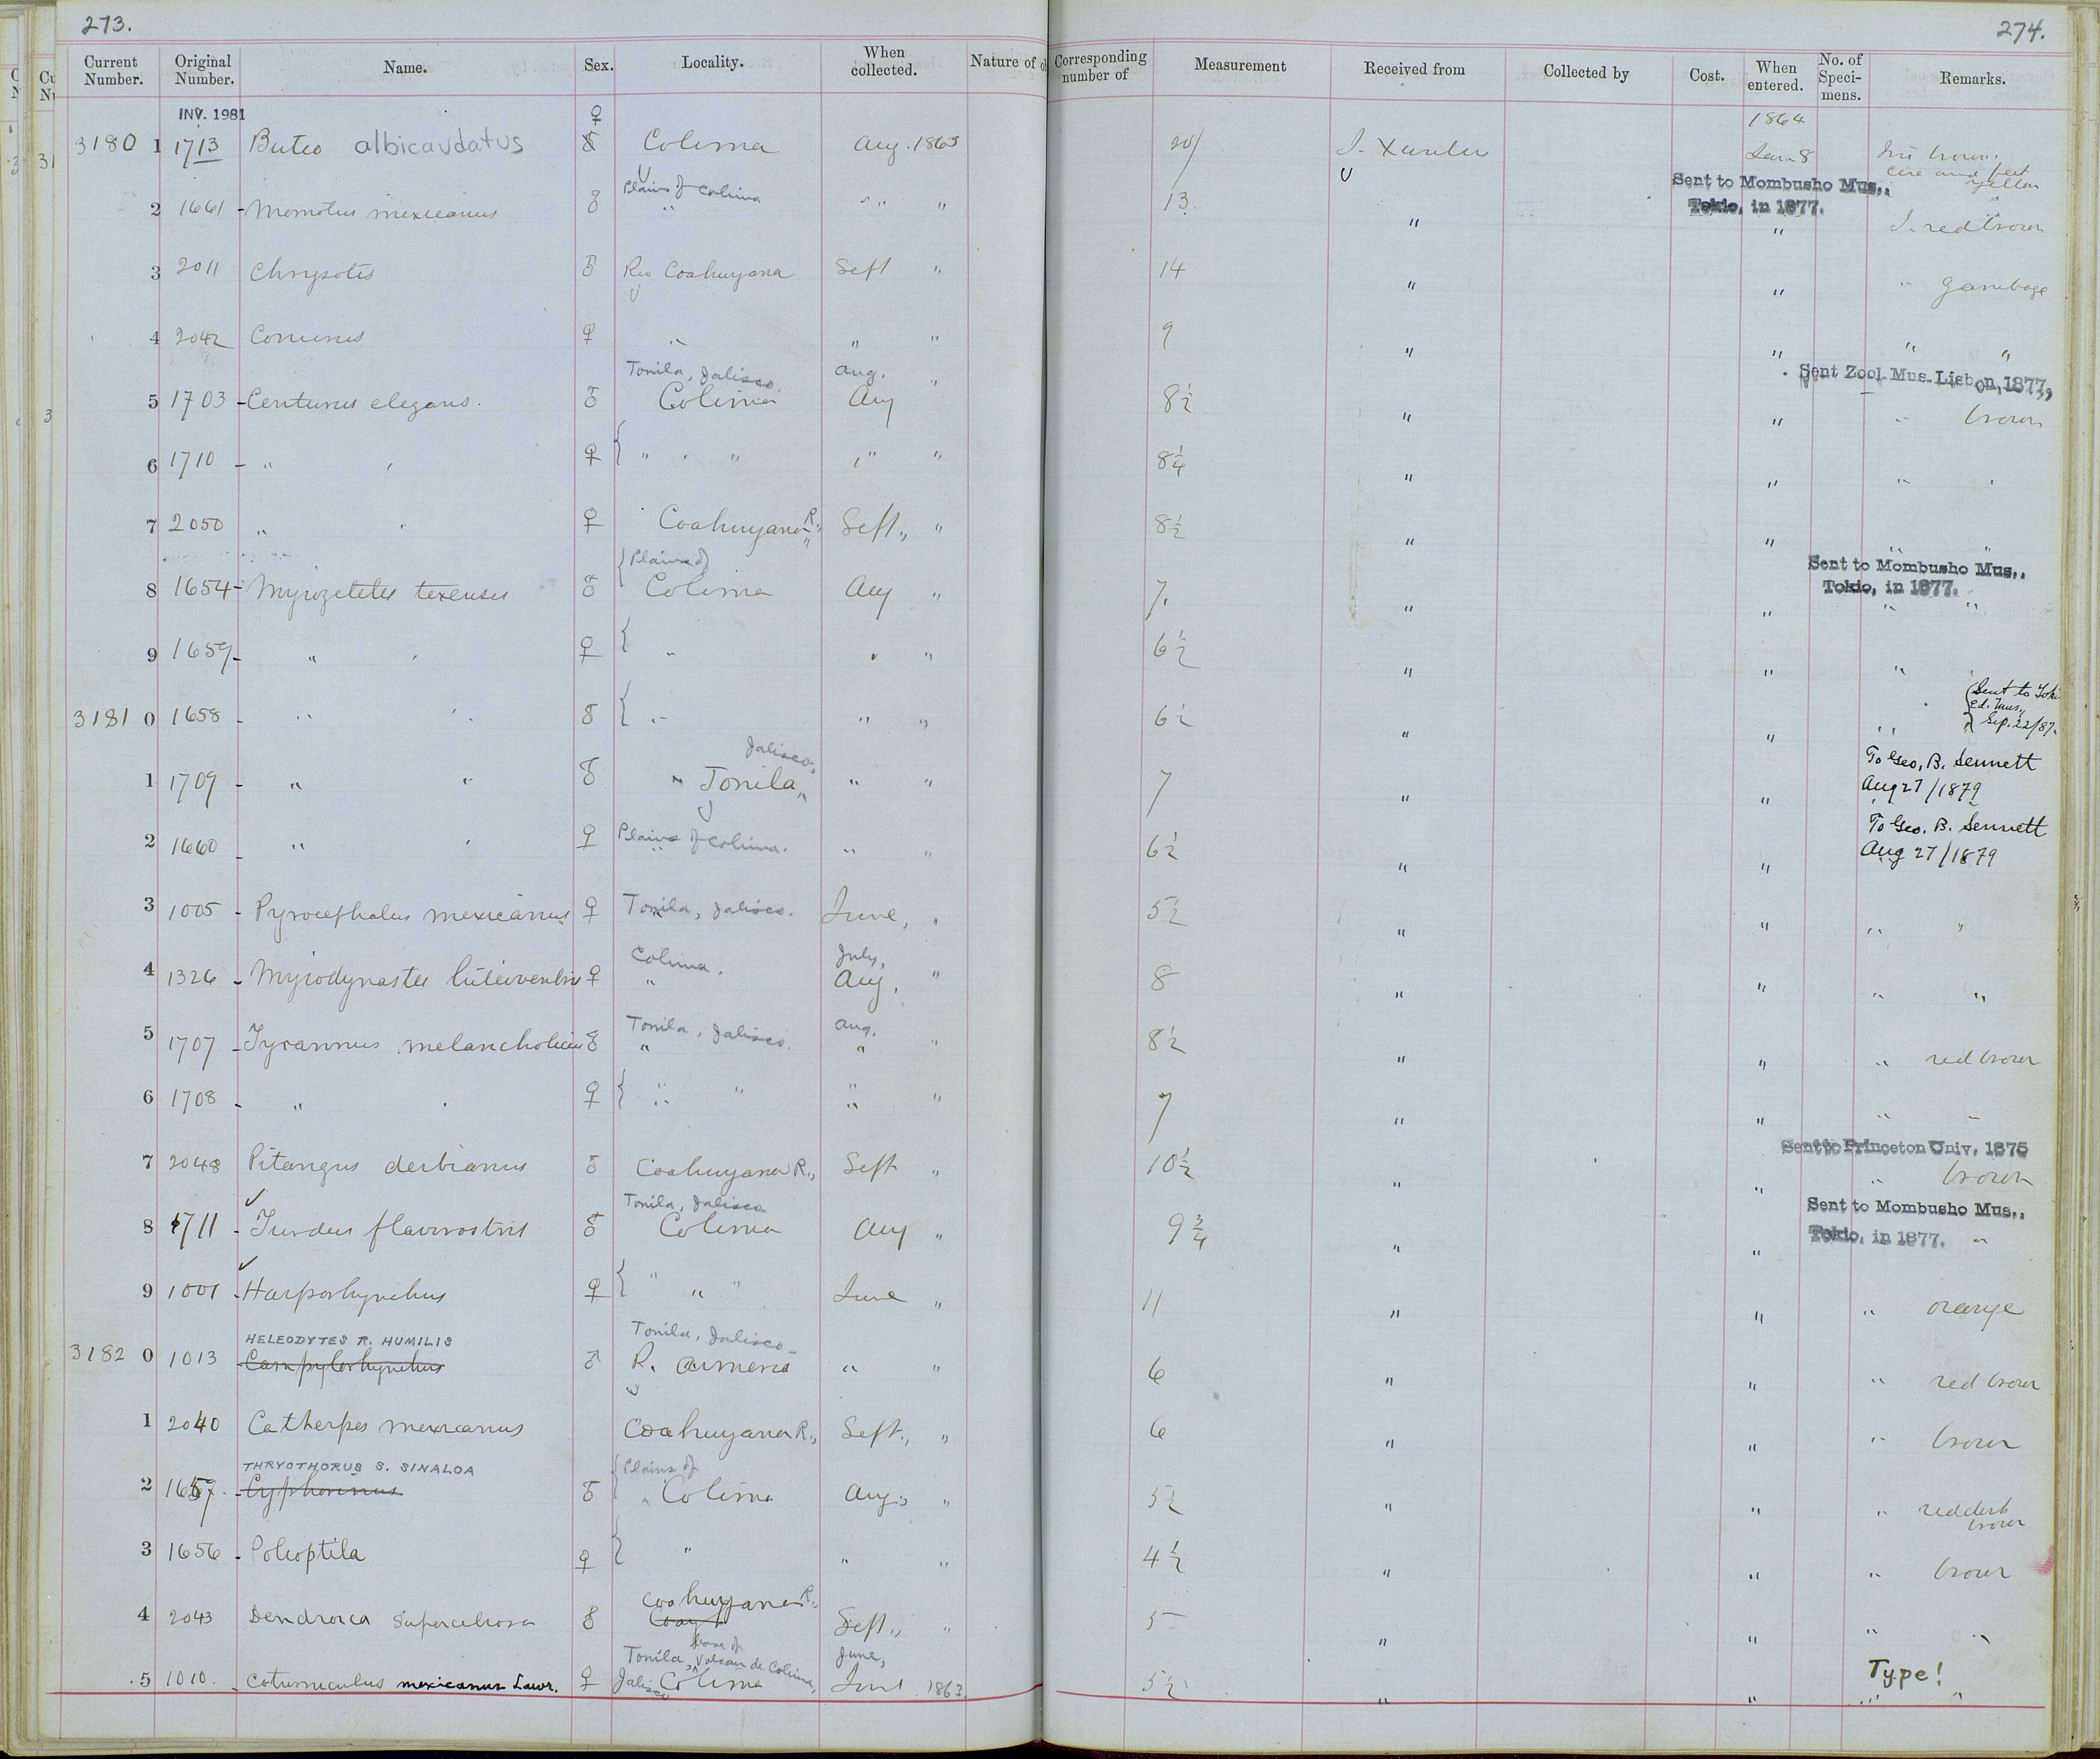 273.
274.
Current Number. Original Number. Name. Sex. Locality. When collected. Nature of Corresponding number of Measurement Received from Collected by Cost. When entered. No. of Speci-mens. Remarks.
INV. 1981 ♀ 1864
3180 1 1713 Buteo albicaudatus Colima Aug. 1863 20 J. Xantus Jan. 8 Iris brown
cere and feet yellow
Plains of Colima
Sent to Mombusho Mus.,
Tokio, in 1877.
2 1661 - Momotus mexicanus ♂ " " " 13. " " I. red brown
3 2011 Chrysotis ♂ Rio Coahuyana Sept " 14 " " " gamboge
4 2042 Conurus ♀ " " " 9 " " " "
Tonila, Jalisco Aug. "
Sent Zool. Mus. Lisbon, 1877,
5 1703 - Centurus elegans. ♂ Colima Aug 8½ " " " brown
6 1710 - " " ♀ { " " " " " 8¼ " " " "
7 2050 " " ♀ Coahuyana R., Sept., " 8½ " " " "
{ Plains of
Sent to Mombusho Mus.,
Tokio, in 1877.
8 1654 - Myiozetetes texensis ♂ Colima Aug " 7. " " " "
9 1659 - " " ♀ { " " " 6½ " " "
3181 0 1658 - " " ♂ { " " " 6½ " " " Sent to Toki
Ed. Mus.,
Sep. 22/87.
Jalisco,
1 1709 - " " ♂ " Tonila, " " 7 " " To Geo. B. Sennett
Aug 27/1879
2 1660 - " " ♀ Plains of Colima. " " 6½ " " To Geo. B. Sennett
Aug 27/1879
3 1005 - Pyrocephalus mexicanus ♀ Tonila, Jalisco. June, " 5½ " " " "
Colima. July,
4 1326 - Myiodynastes luteiventris ♀ " Aug, " 8 " " " "
Tonila, Jalisco. Aug.
5 1707 - Tyrannus melancholicus ♂ " " " 8½ " " " red brown
6 1708 - " " ♀ { " " " " 7 " " " "
Sent to Princeton Univ. 1875
7 2048 Pitangus derbianus ♂ Coahuyana R., Sept " 10½ " " " brown
Tonila, Jalisco
Sent to Mombusho Mus.,
Tokio, in 1877.
8 1711 - Turdus flavirostris ♂ Colima Aug " 9¾ " " "
9 1001 - Harporhynchus ♀ { " " " June " 11 " " " orange
HELEODYTES R. HUMILIS Tonila, Jalisco
3182 0 1013 Campylorhynchus ♂ R. Armeria " " 6 " " " red brown
1 2040 Catherpes mexicanus Coahuyana R., Sept., " 6 " " " brown
THRYOTHORUS S. SINALOA { Plains of
2 1657 - Cyphorinus ♂ Colima Aug., " 5½ " " " reddish brown
3 1656 - Polioptila ♀ { " " " 4½ " " " brown
Coahuyana R.,
4 2043 Dendroica superciliosa ♂ Sept., " 5 " " " "
Tonila, base of Volcan de Colima, June,
Type!
5 1010. - Coturniculus mexicanus Lawr. ♀ Jalisco Colima June 1863. 5½ " " " "